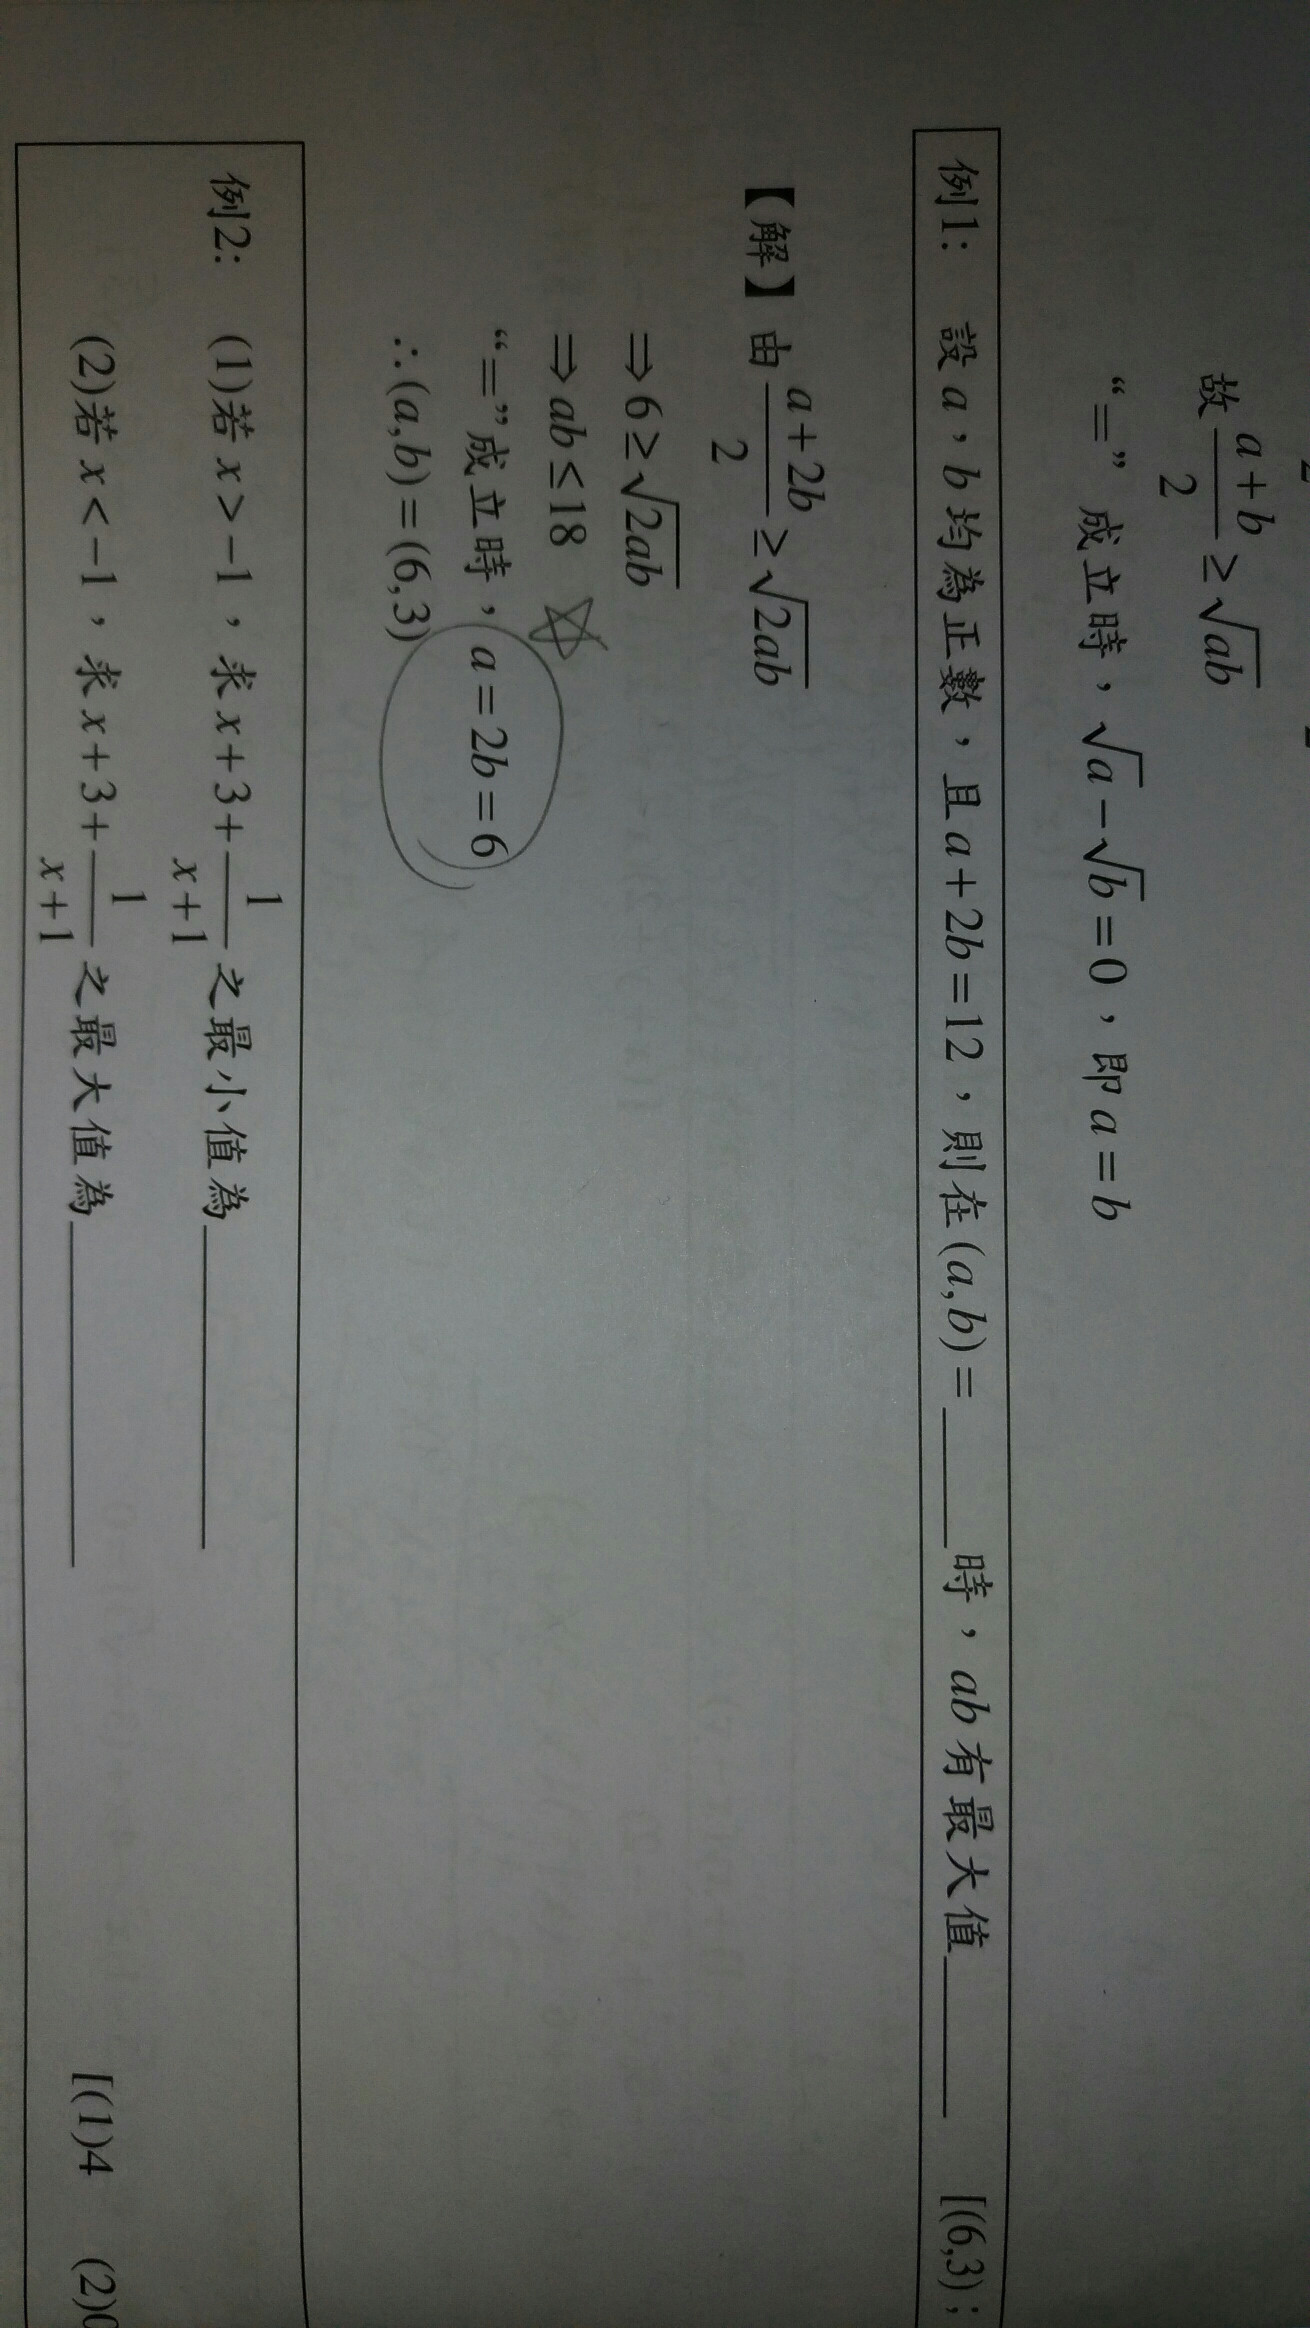 故 (a+b)/2 ≥ √(ab)
“=” 成立時，√a − √b = 0，即 a = b
例1: 設 a，b 均為正數，且 a + 2b = 12，則在 (a,b) = ____ 時，ab 有最大值 ____ [(6,3)；
【解】由 (a+2b)/2 ≥ √(2ab)
⇒ 6 ≥ √(2ab)
⇒ ab ≤ 18 ☆
“=” 成立時，a = 2b = 6
∴ (a,b) = (6,3)
例2: (1)若 x > −1，求 x + 3 + 1/(x+1) 之最小值為 ________
(2)若 x < −1，求 x + 3 + 1/(x+1) 之最大值為 ________ [(1)4 (2)0